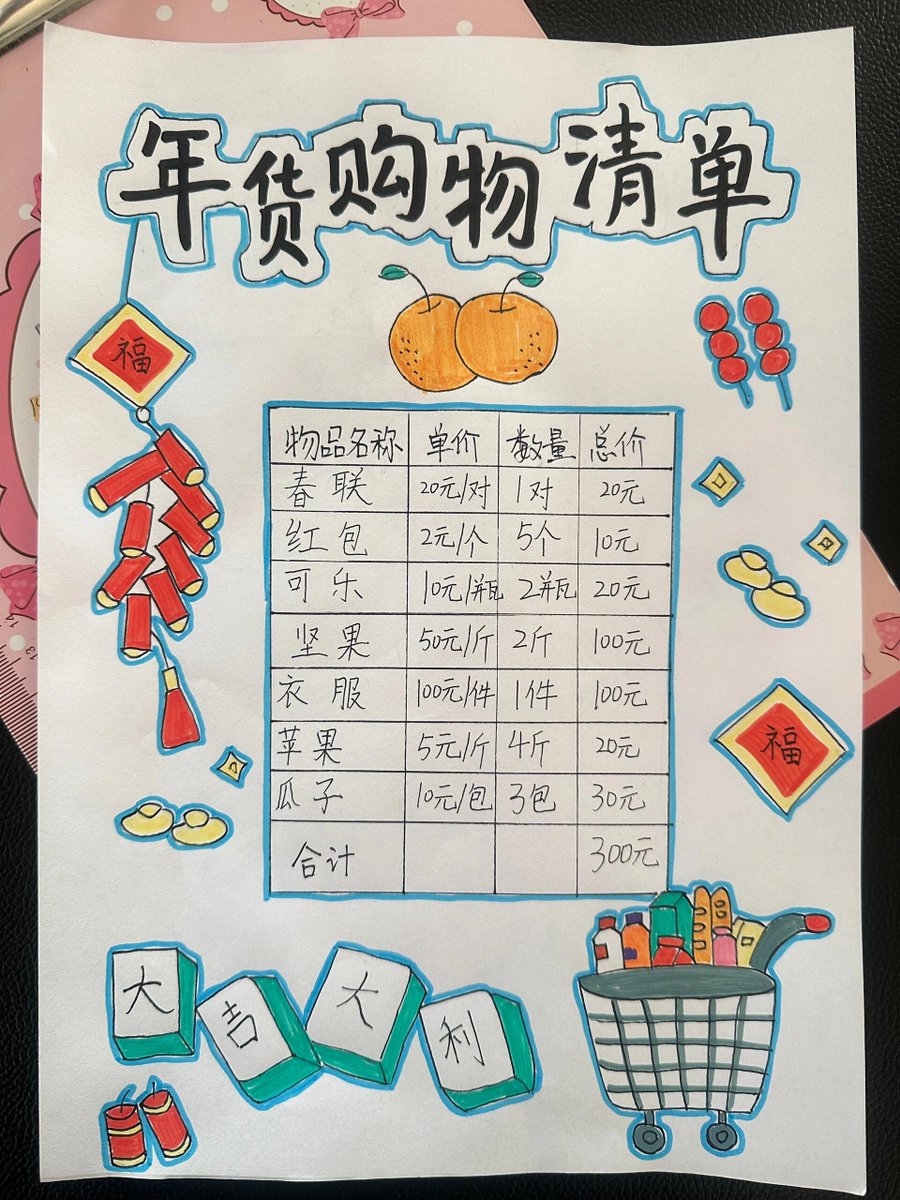 年货购物清单
福
物品名称 单价 数量 总价
春联 20元/对 1对 20元
红包 2元/个 5个 10元
可乐 10元/瓶 2瓶 20元
坚果 50元/斤 2斤 100元
衣服 100元/件 1件 100元
苹果 5元/斤 4斤 20元
瓜子 10元/包 3包 30元
合计 300元
福
大吉大利